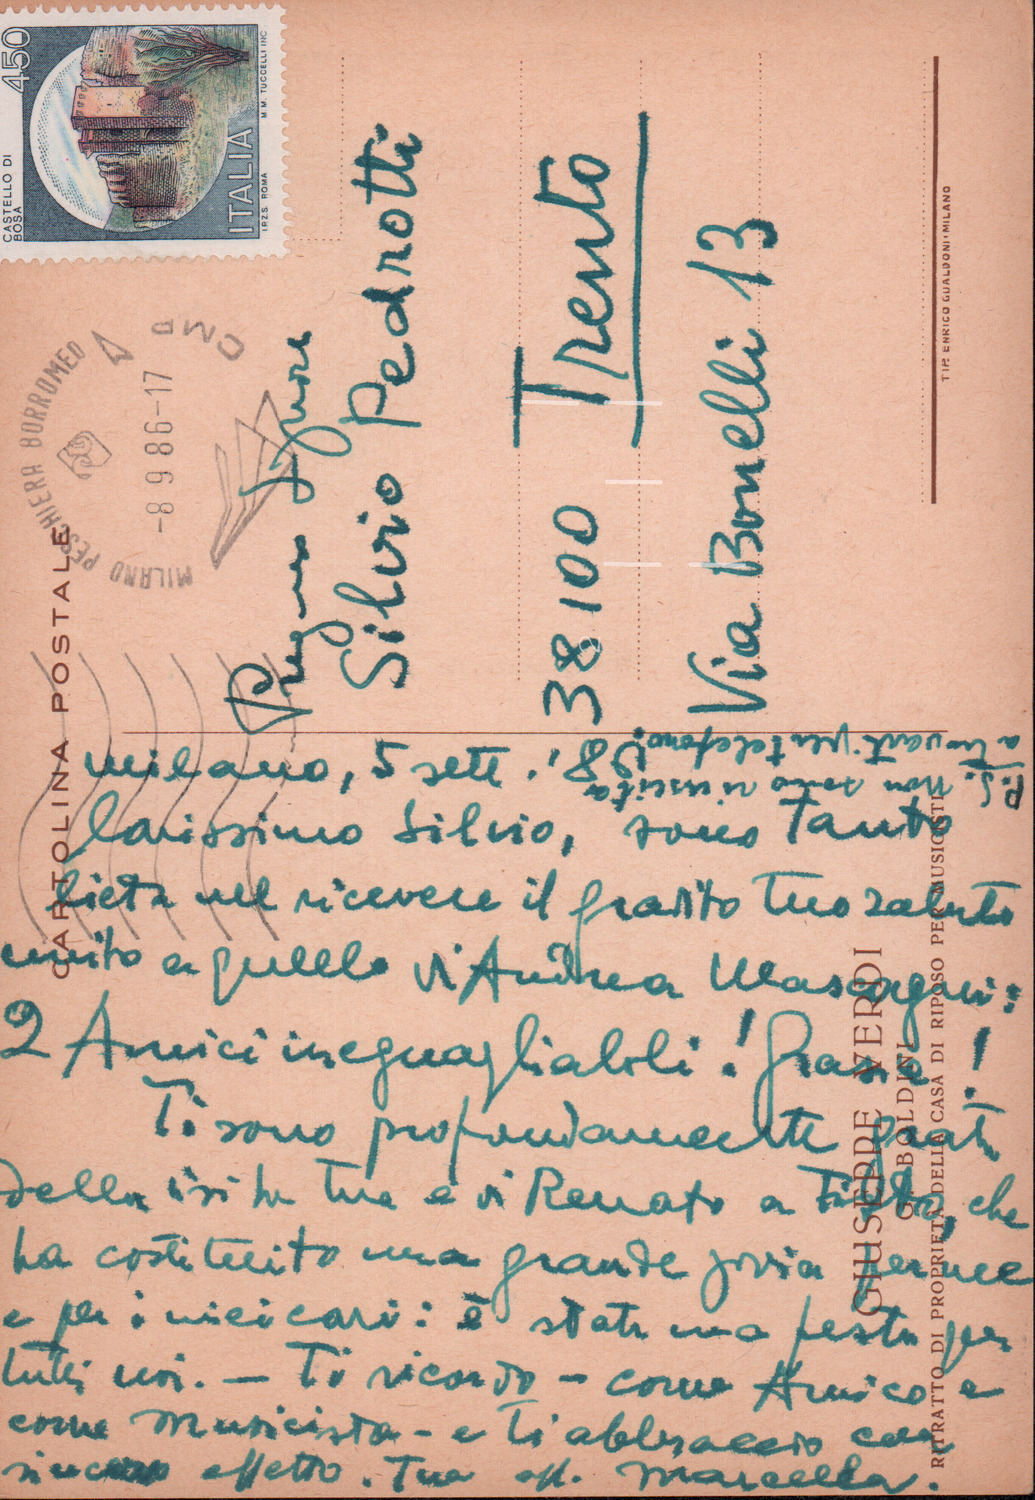 CARTOLINA POSTALE
450
CASTELLO DI
BOSA
ITALIA
I.P.Z.S. ROMA M.M. TUCCELLI INC.
MILANO PESCHIERA BORROMEO
CMP
-8 9 86-17
Silvio Pedrotti
38100 Trento
Via Bonelli 13
TIP. ENRICO GUALDONI • MILANO
milano, 5 sett. '86
Carissimo Silvio, sono tanto
lieta nel ricevere il gradito tuo saluto
unito a quello di Andrea Mascagni:
2 Amici ineguagliabili! Grazie!
Ti sono profondamente grata
della visita tua e di Renato a che
ha costituito una grande gioia per me
e per i miei cari: è stata una festa per
tutti noi. — Ti ricordo – come Amico e
come musicista – e ti abbraccio con
affetto. Tua aff. Marcella.
P.S. Non sono riuscita
a trovarti per telefono!
GIUSEPPE VERDI
G. BOLDINI
RITRATTO DI PROPRIETÀ DELLA CASA DI RIPOSO PER MUSICISTI